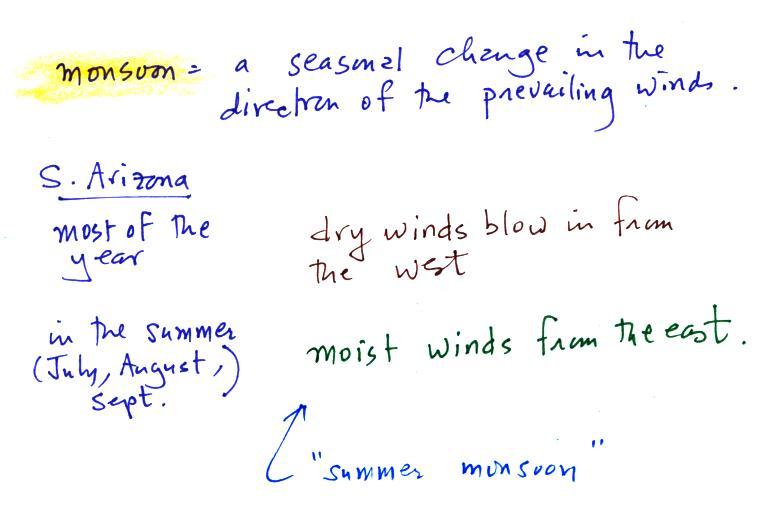 monsoon = a seasonal change in the
direction of the prevailing winds.
S. Arizona
most of the
year
dry winds blow in from
the west
in the summer
(July, August,)
Sept.
moist winds from the east.
"summer monsoon"